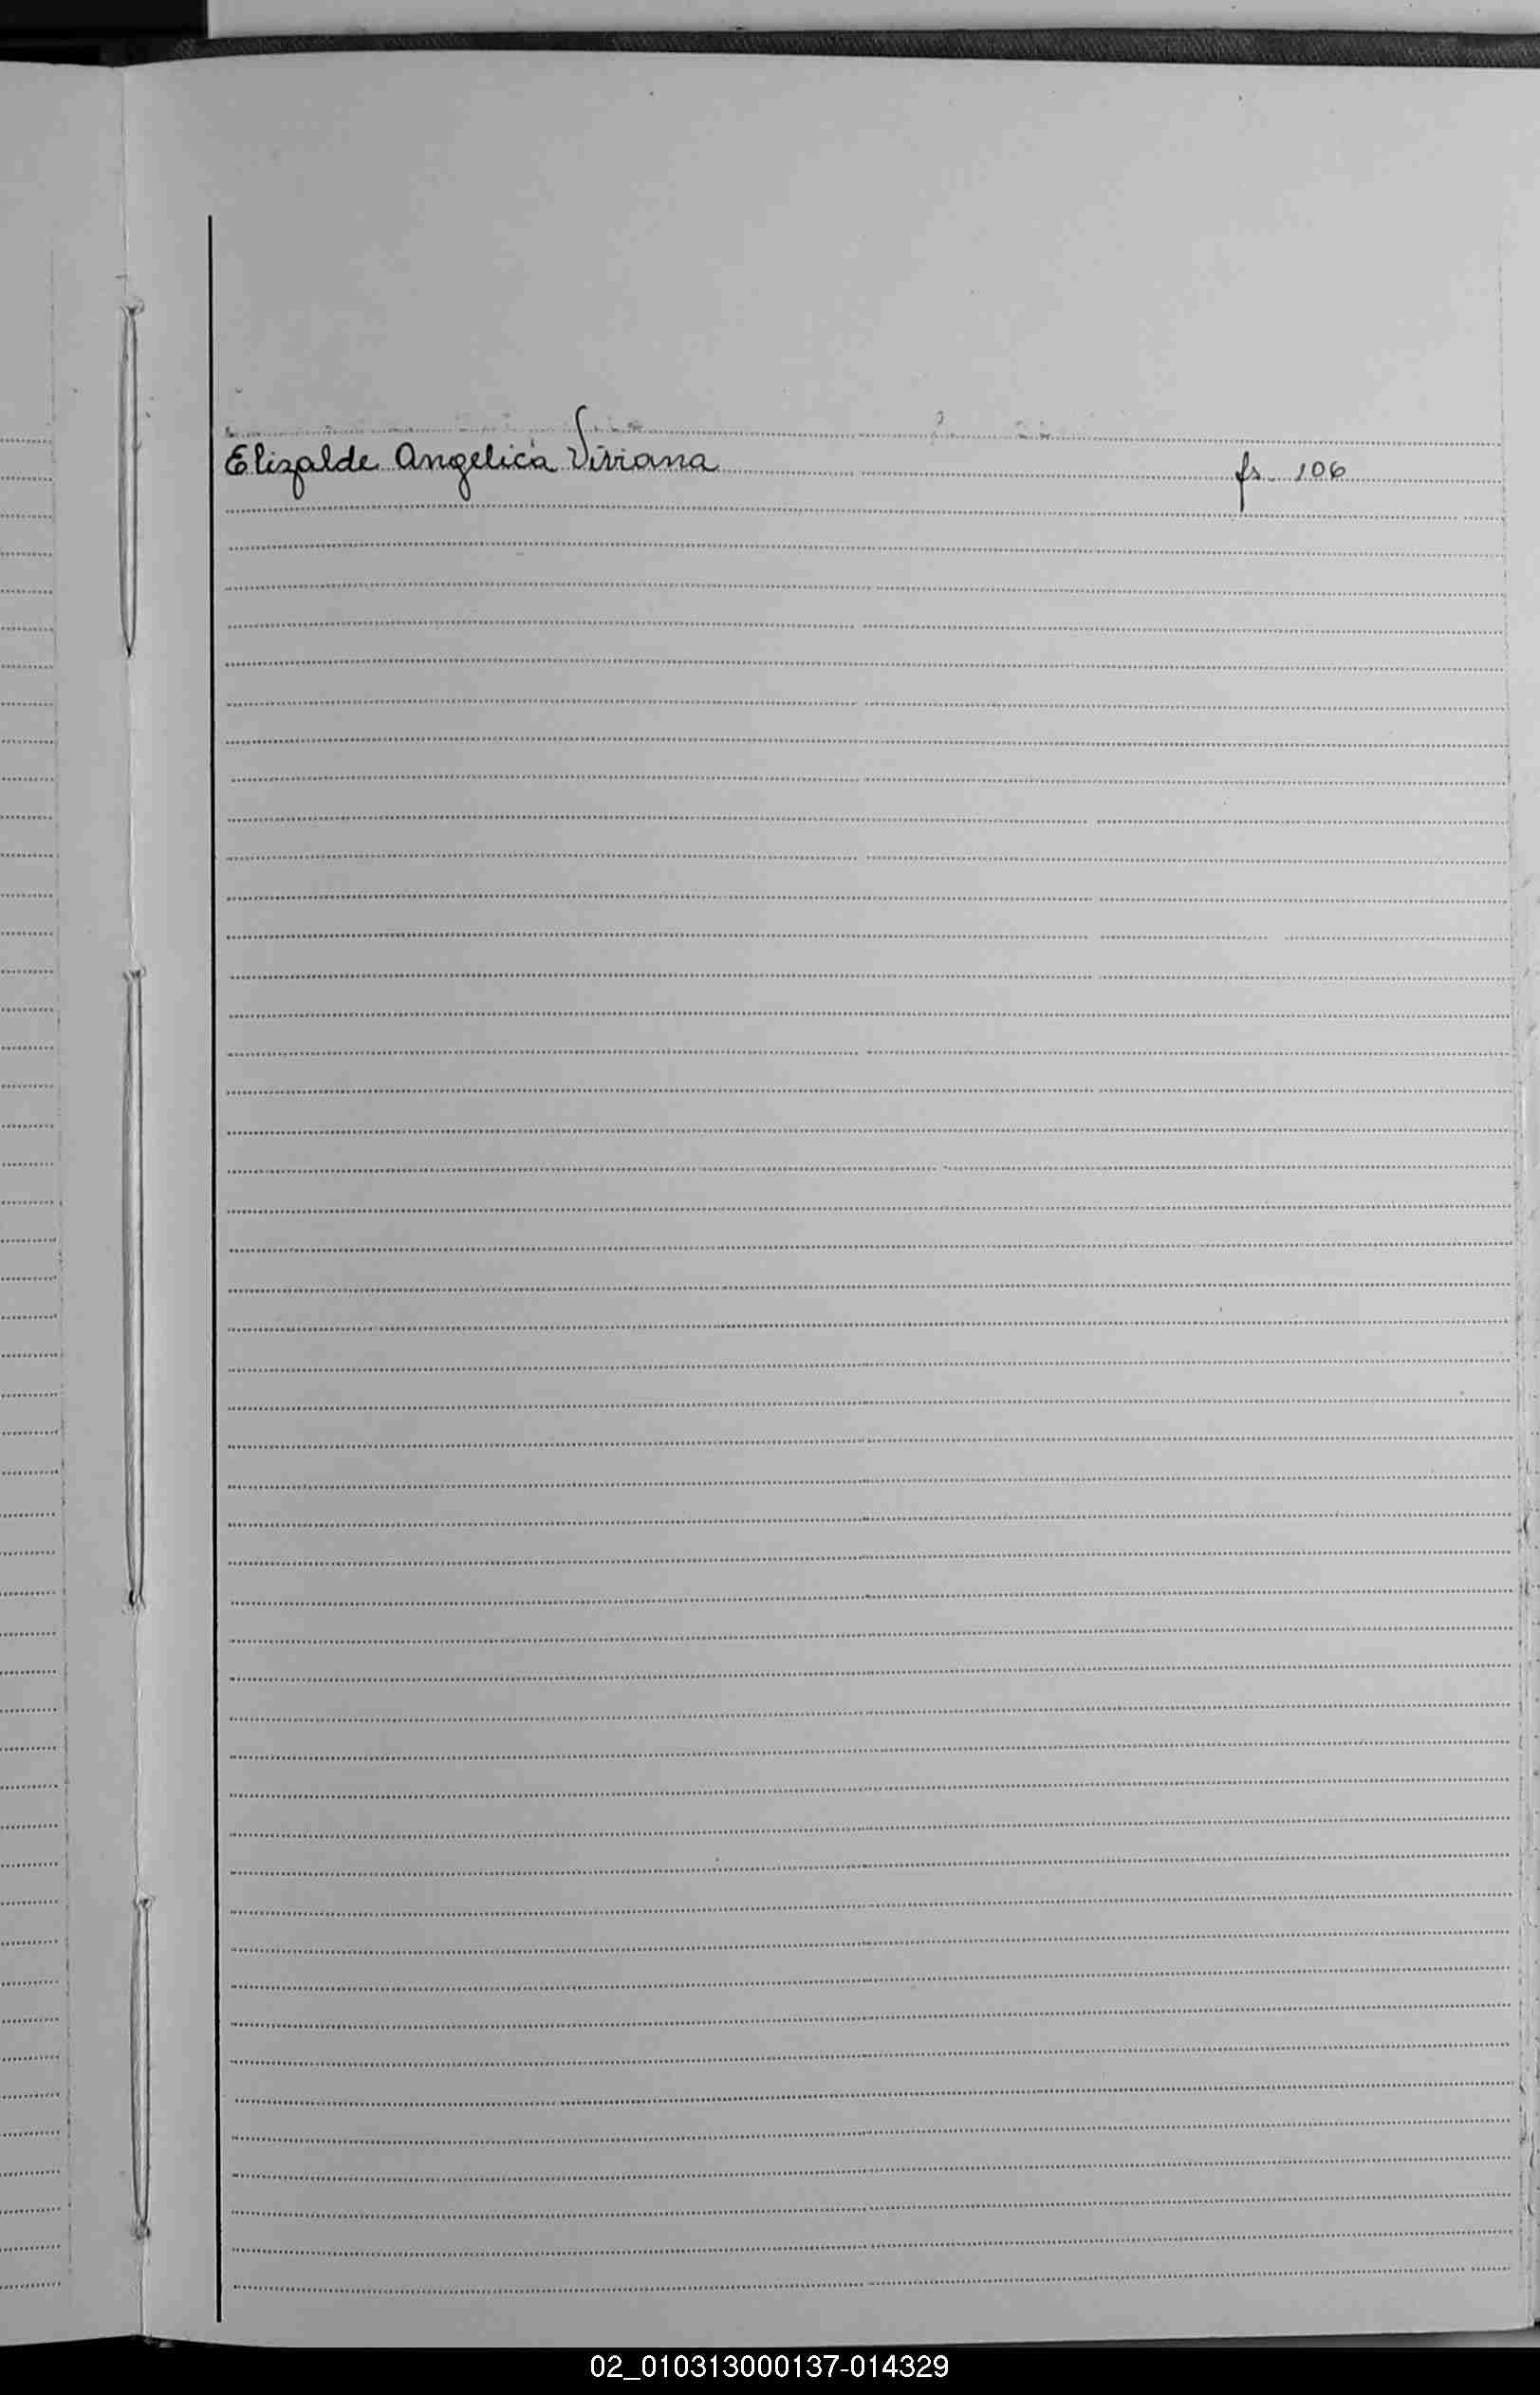 Elizalde Angelica Viviana fs. 106
02_010313000137-014329